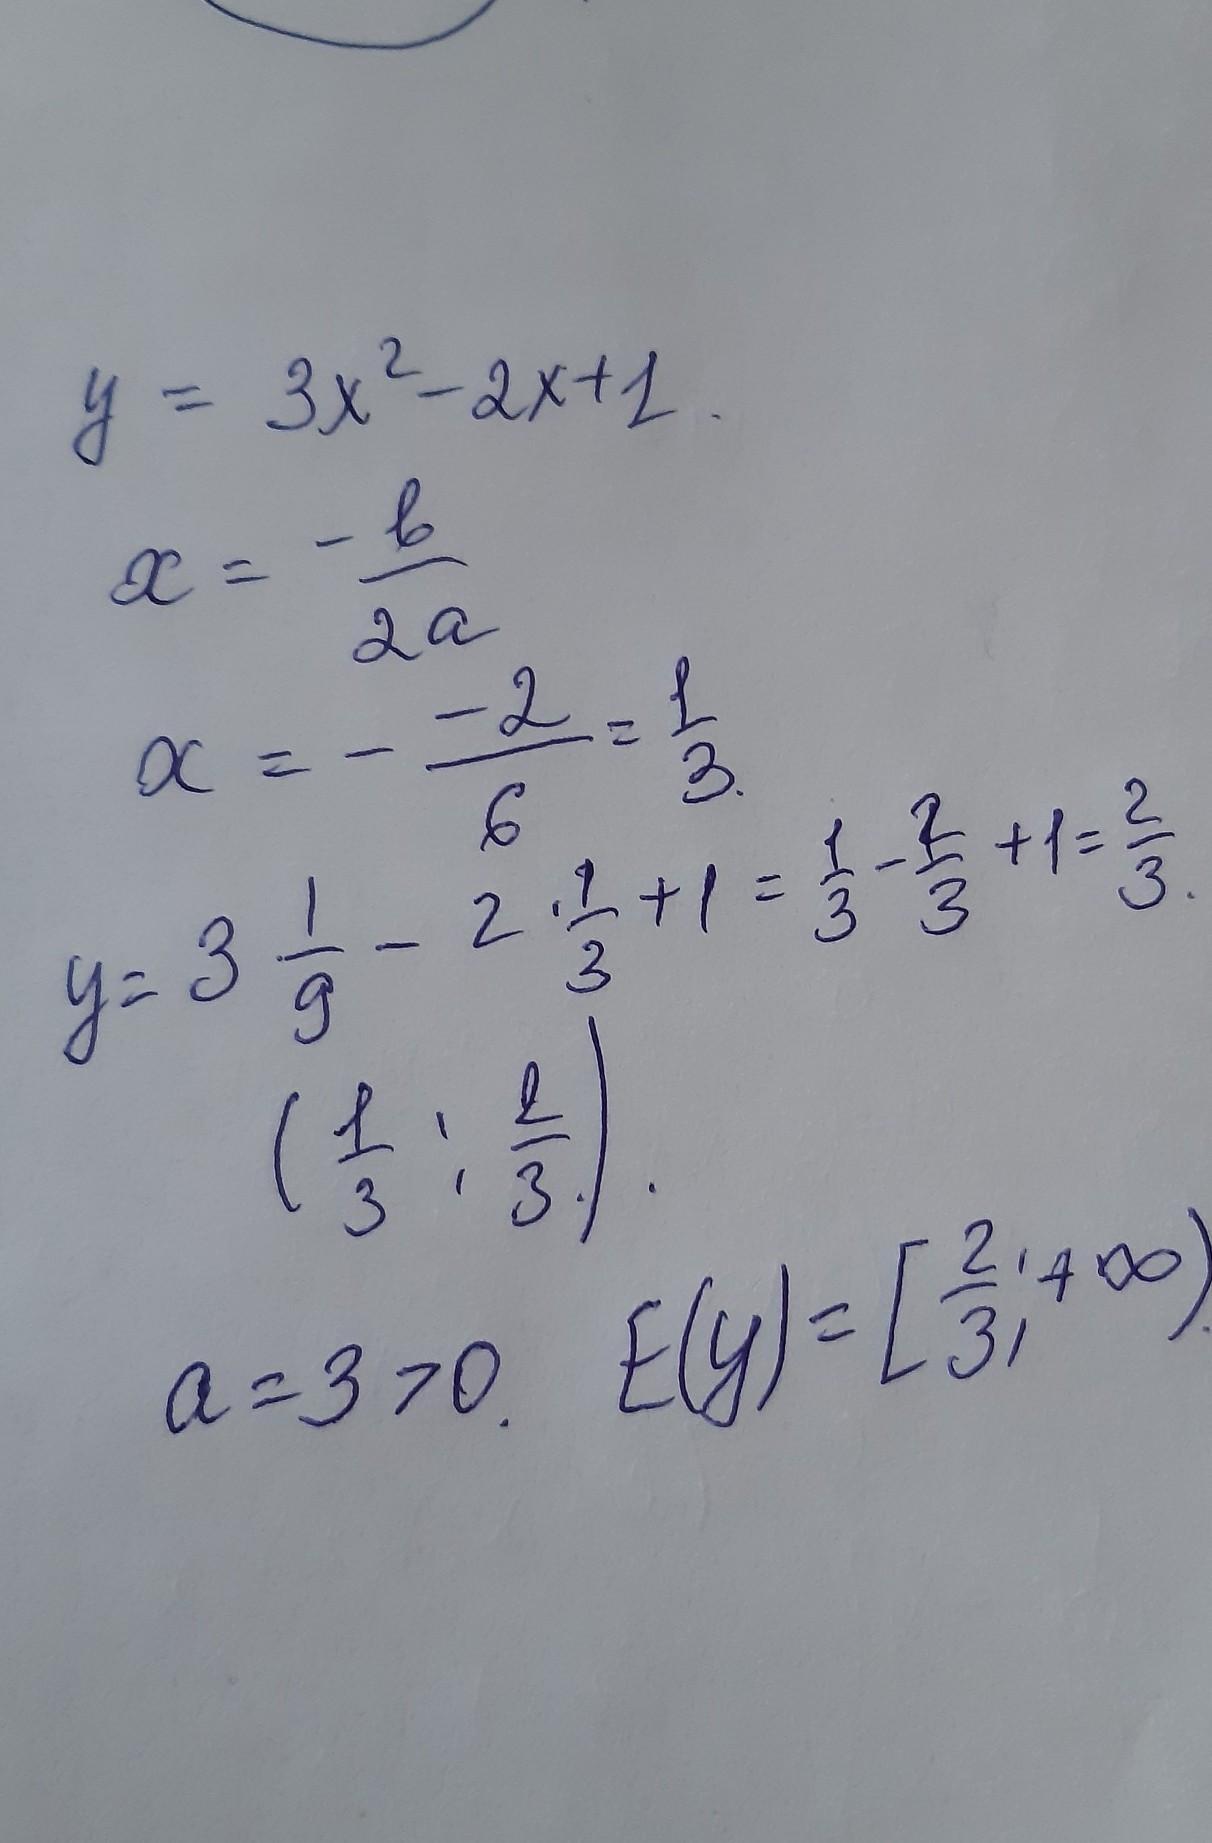 y = 3x² - 2x + 1.
x = -b/2a
x = - -2/6 = 1/3.
y = 3 1/9 - 2 · 1/3 + 1 = 1/3 - 2/3 + 1 = 2/3.
(1/3 ; 2/3.).
a = 3 > 0. E(y) = [2/3; +∞).